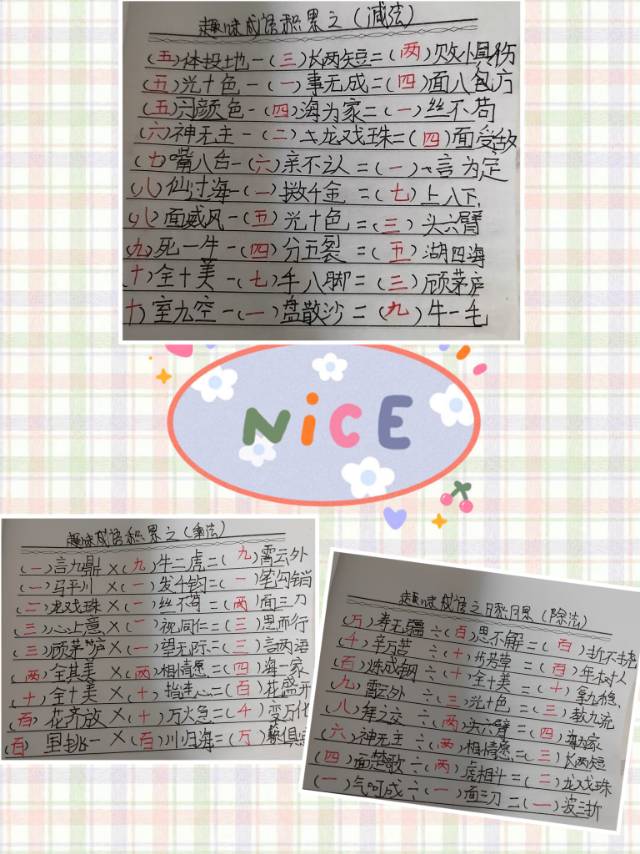 趣味成语积累之(减法)
(五)体投地-(三)长两短=(两)败小具伤
(五)光十色-(一)事无成=(四)面八方
(五)颜色-(四)海为家=(一)丝不苟
(六)神无主-(二)龙戏珠=(四)面受敌
(七)嘴八舌-(六)亲不认=(一)言为定
(八)仙过海-(一)掷千金=(七)上八下
(八)面威风-(五)光十色=(三)头六臂
(九)死一生-(四)分五裂=(五)湖四海
(十)全十美-(七)手八脚=(三)顾茅庐
(十)室九空-(一)盘散沙=(九)牛一毛
NiCE
趣味成语积累之(乘法)
(一)言九鼎×(九)牛二虎=(九)霄云外
(一)马平川×(一)发千钧=(一)笔勾销
(二)龙戏珠×(一)丝不苟=(两)面三刀
(三)心二意×(一)视同仁=(三)思而行
(三)顾茅庐×(一)望无际=(三)言两语
(两)全其美×(两)相情愿=(四)海一家
(十)全十美×(十)=(百)花盛开
(百)花齐放×(十)万火急=(千)变万化
(百)里挑一×(百)川归海=(万)俱
趣味成语之积累(除法)
(万)寿无疆÷(百)思不解=(百)折不挠
(千)辛万苦÷(十)步芳草=(百)年树人
(百)炼成钢÷(十)全十美=(十)拿九稳
(九)霄云外÷(三)光十色=(三)教九流
(八)拜之交÷(两)头六臂=(四)海为家
(六)神无主÷(两)相情愿=(三)长两短
(四)面楚歌÷(两)虎相斗=(二)龙戏珠
(一)气呵成÷(一)面三刀=(一)波三折